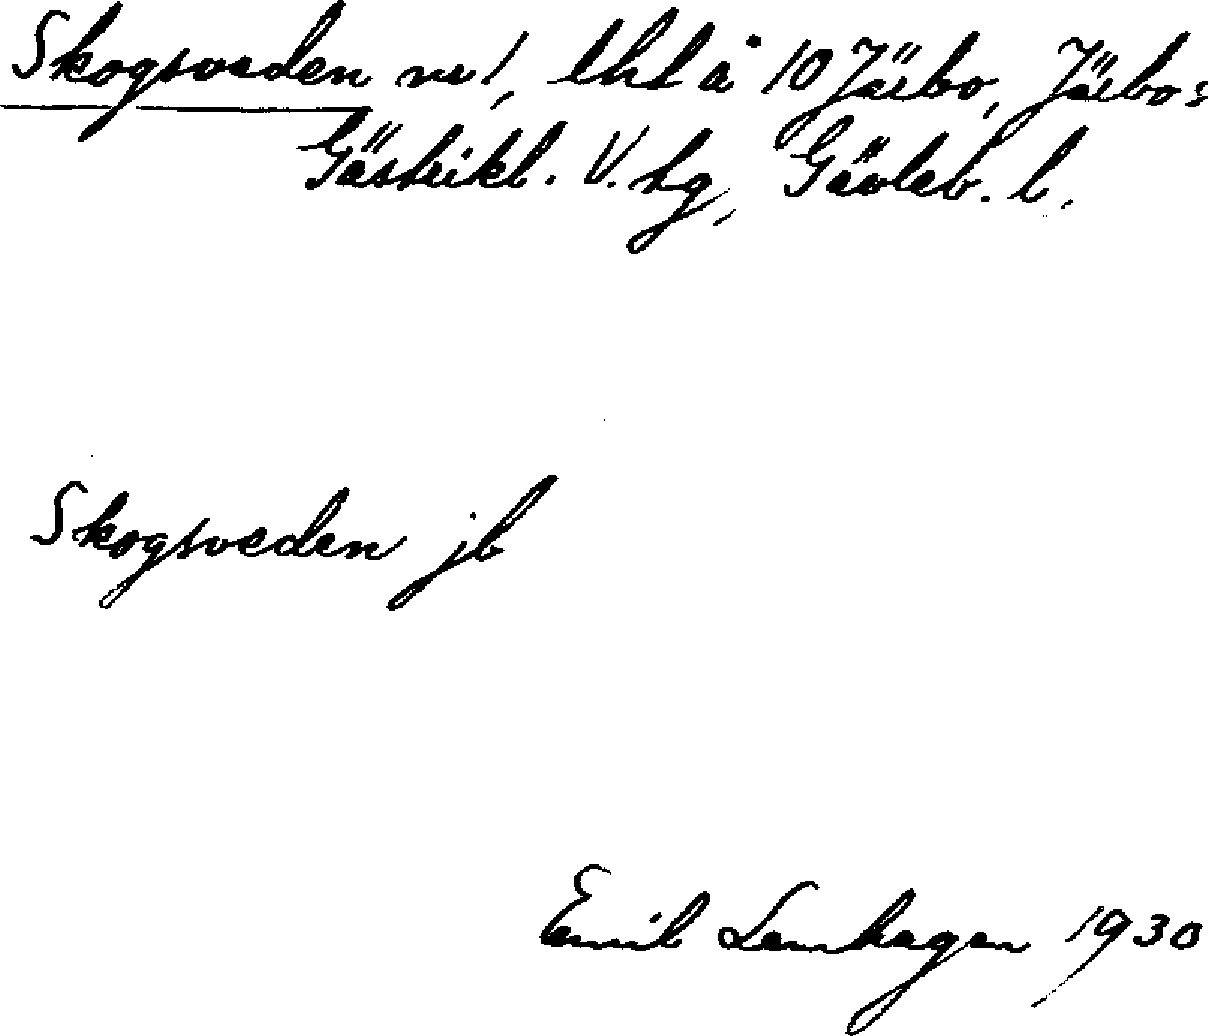 Skogsveden nr 1, lht å 10 Järbo, Järbo s
Gästrikl. V. tg, Gävleb. l.
Skogsveden jb
Emil Lenhagen 1930